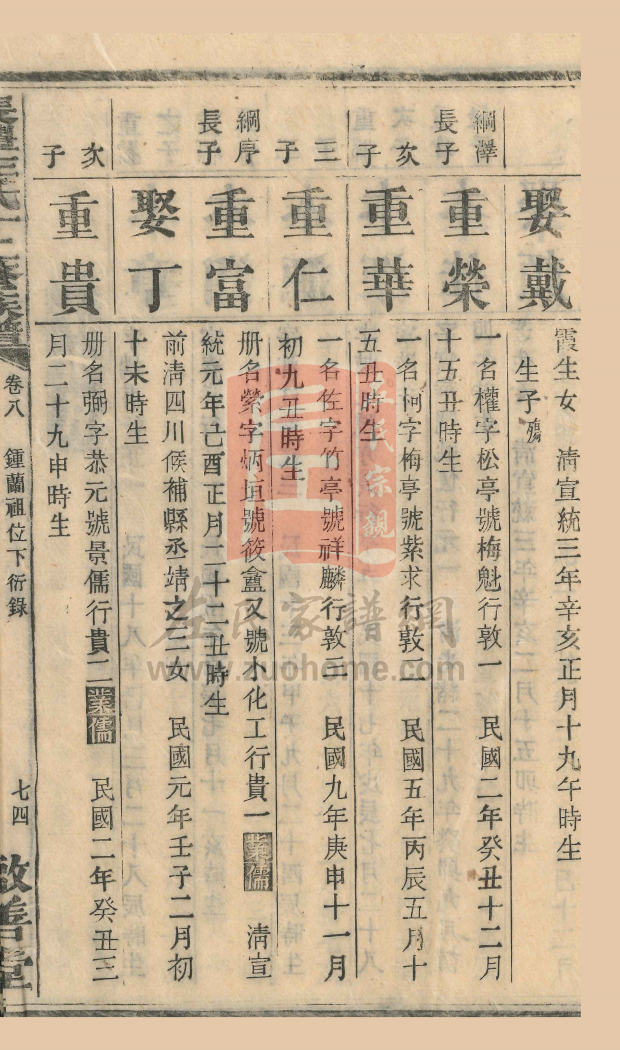 娶戴
霞生女　清宣統三年辛亥正月十九午時生
生子殤
綱澤
長子
重榮
一名權字松亭號梅魁行敦一　民國二年癸丑十二月
十五丑時生
次
子
重華
一名柯字梅亭號紫求行敦二　民國五年丙辰五月十
五丑時生
三
子
重仁
一名佐字竹亭號祥麟行敦三　民國九年庚申十一月
初九丑時生
綱序
長子
重富
册名縈字炳垣號筱盦又號小化工行貴一業儒　清宣
統元年己酉正月二十二丑時生
娶丁
前清四川候補縣丞靖之三女　民國元年壬子二月初
十未時生
次
子
重貴
册名弼字恭元號景儒行貴二業儒　民國二年癸丑三
月二十九申時生
卷八　鍾蘭祖位下衍錄
七四
敦善堂
左氏家譜網
www.zuohome.com